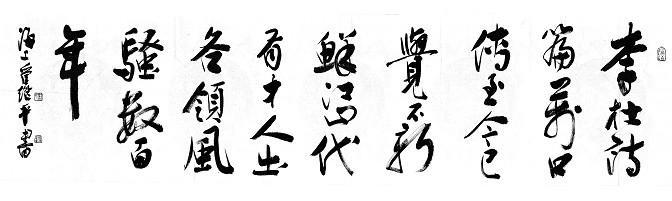 李杜詩
篇萬口
傳至今已
覺不新
鮮江山代
有才人出
各領風
騷數百
年
海上 書